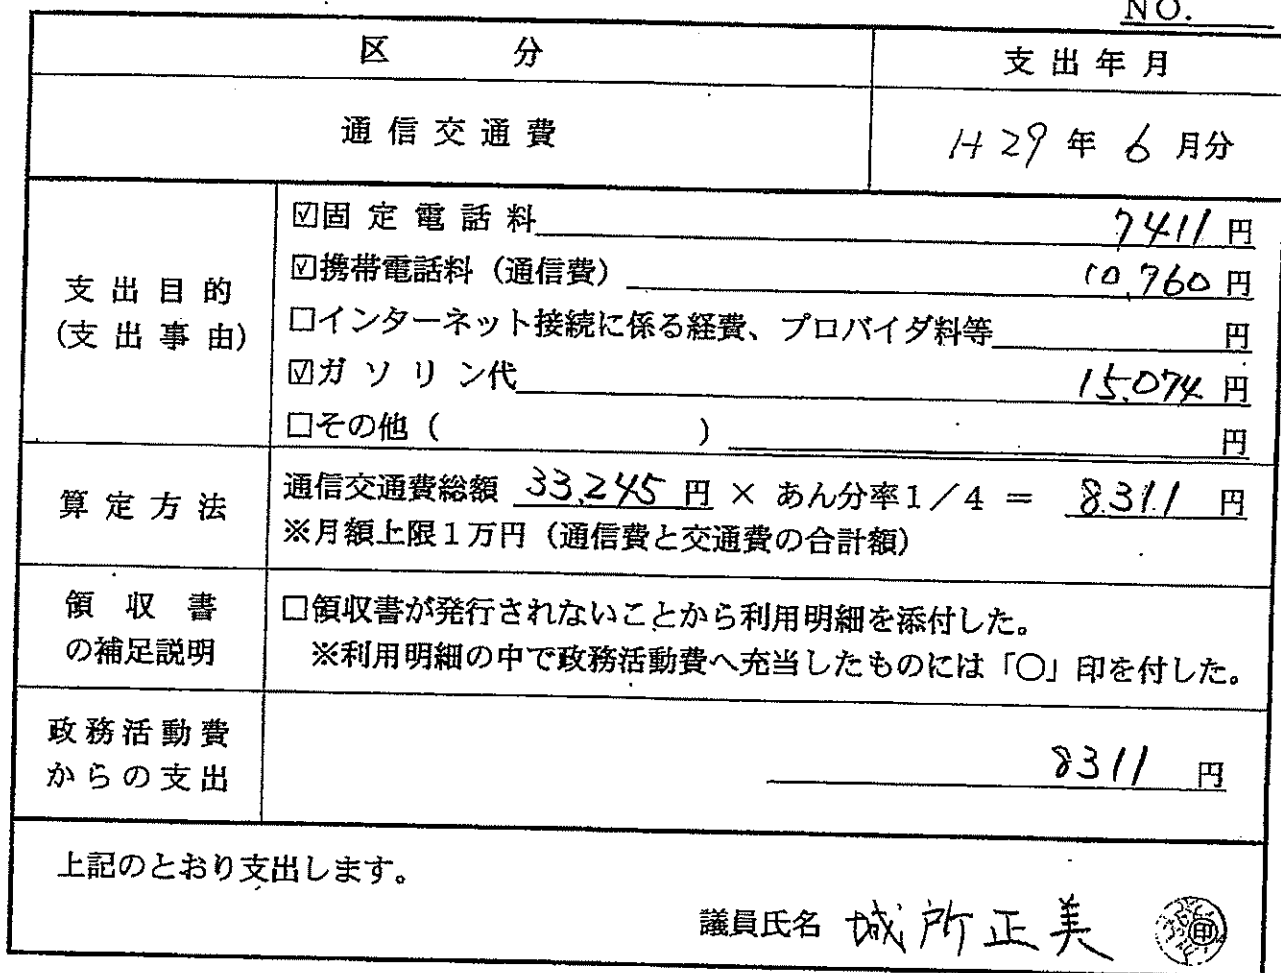 NO.
区 分 支出年月
通信交通費 H29年 6月分
支出目的
(支出事由)
☑固定電話料 7411円
☑携帯電話料(通信費) 10,760円
□インターネット接続に係る経費、プロバイダ料等 円
☑ガソリン代 15,074円
□その他( ) 円
算定方法
通信交通費総額 33,245円 × あん分率1/4 = 8,311円
※月額上限1万円(通信費と交通費の合計額)
領収書
の補足説明
□領収書が発行されないことから利用明細を添付した。
※利用明細の中で政務活動費へ充当したものには「○」印を付した。
政務活動費
からの支出
8311円
上記のとおり支出します。
議員氏名 城所正美 ㊞